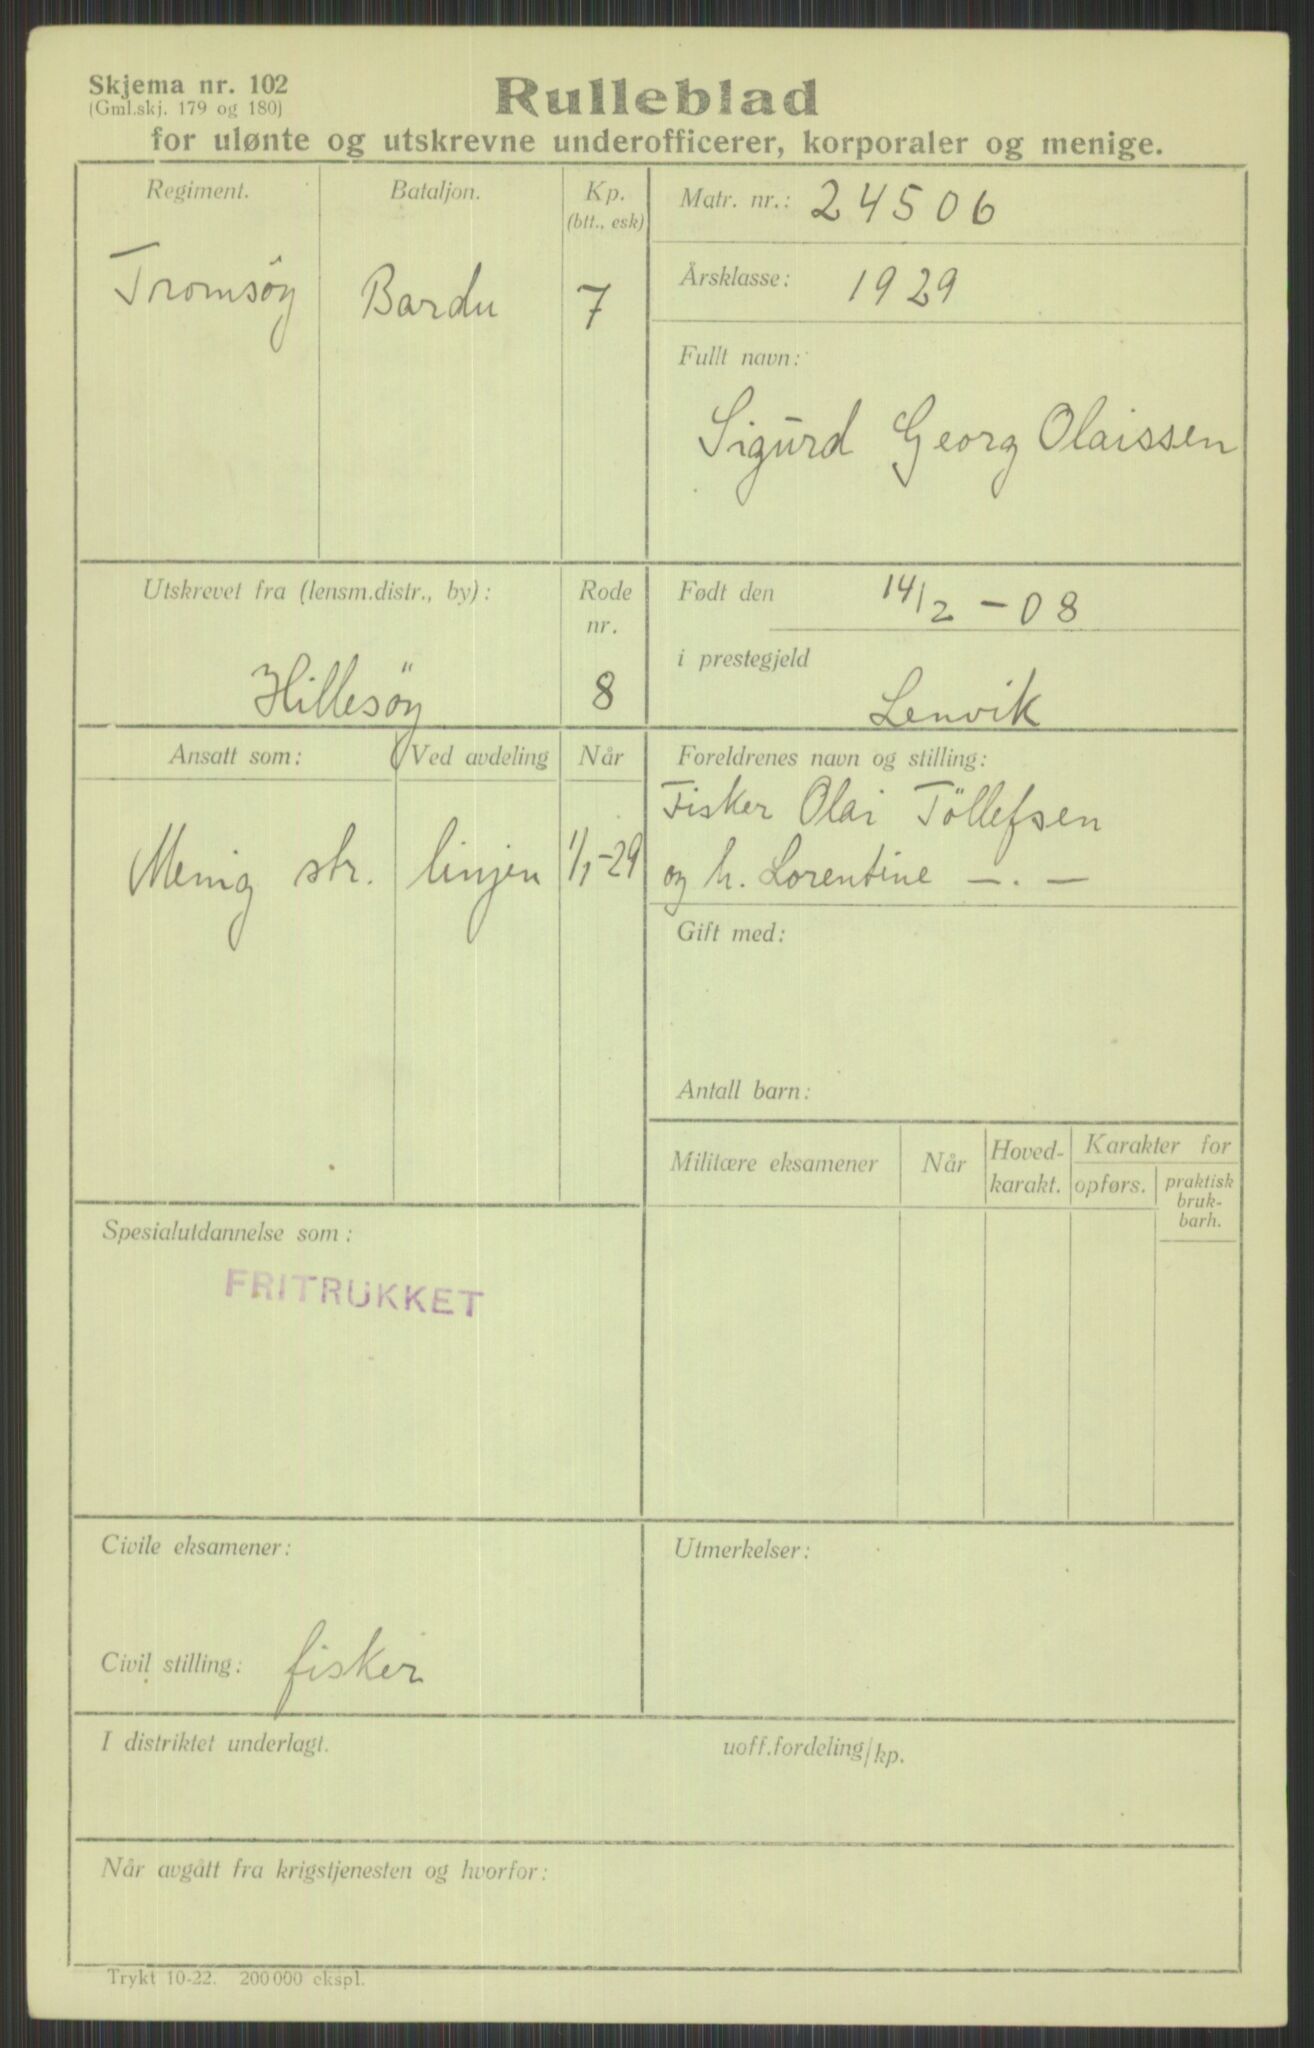 Skjema nr. 102
(Gml.skj. 179 og 180)
Rulleblad
for ulønte og utskrevne underofficerer, korporaler og menige.
Regiment.
Bataljon.
Kp.
(btt., esk)
Tromsöy
Bardu
7
Matr. nr.: 24506
Årsklasse: 1929
Fullt navn:
Sigurd Georg Olaissen
Utskrevet fra (lensm.distr., by):
Rode
nr.
Hillesöy
8
Født den 14/2 - 08
i prestegjeld
Lenvik
Ansatt som:
Ved avdeling
Når
Menig str.
linjen
1/1-29
Foreldrenes navn og stilling:
Fisker Olai Töllefsen
og h. Lorentine —.—
Gift med:
Antall barn:
Militære eksamener
Når
Hoved-
karakt.
Karakter for
opførs.
praktisk
bruk-
barh.
Spesialutdannelse som:
FRITRUKKET
Civile eksamener:
Civil stilling: fisker
Utmerkelser:
I distriktet underlagt.
uoff.fordeling/kp.
Når avgått fra krigstjenesten og hvorfor:
Trykt 10-22. 200 000 ekspl.